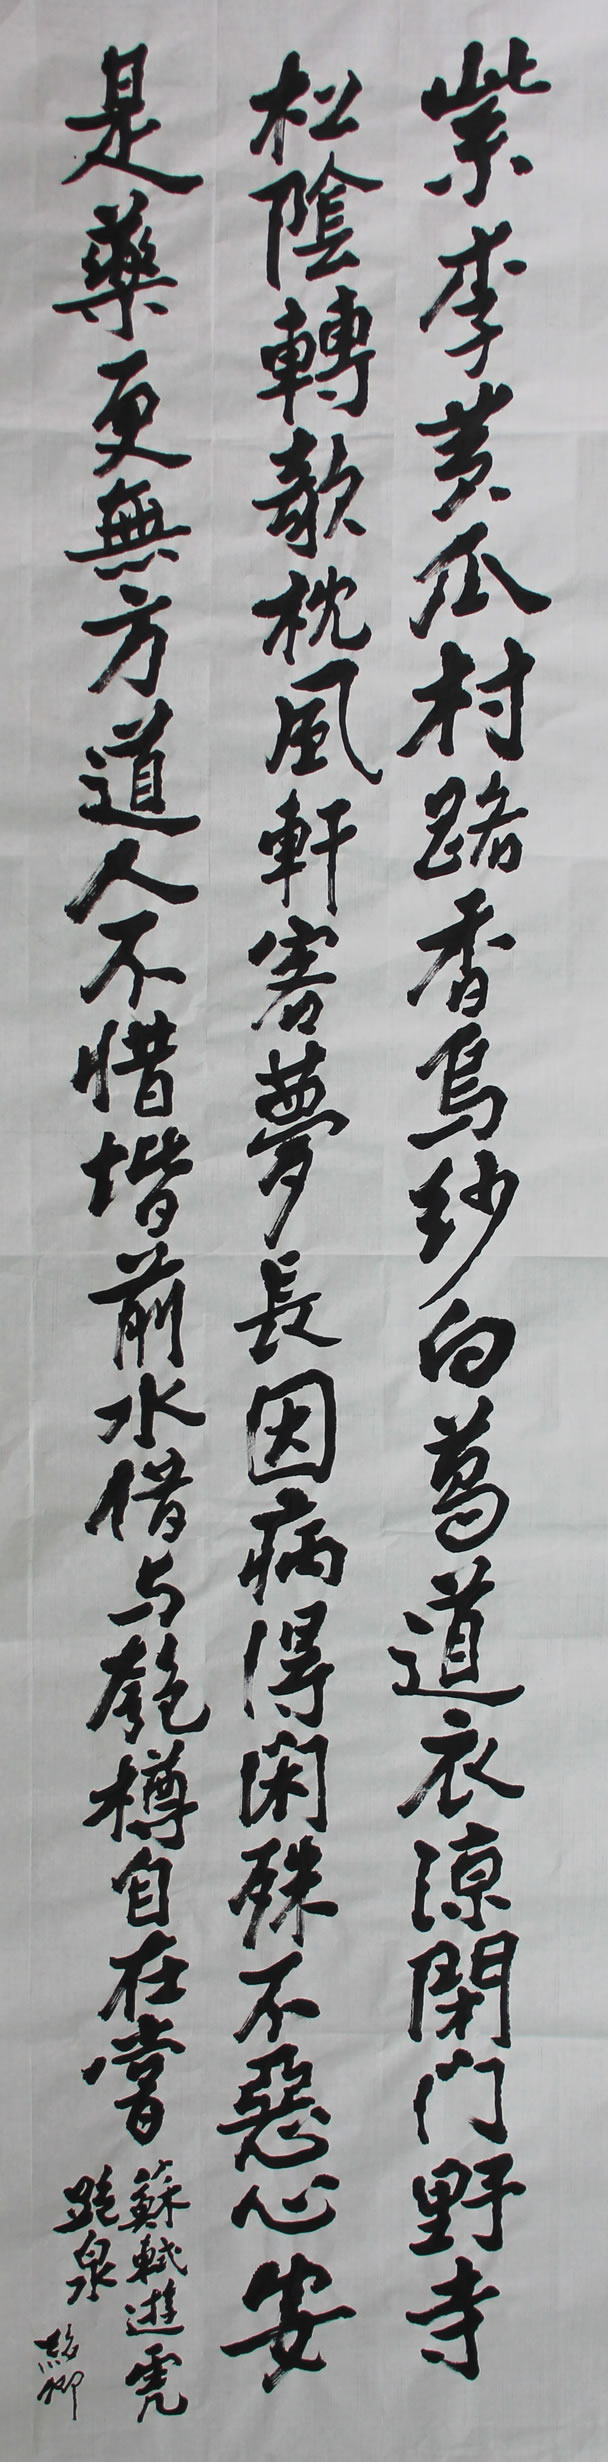 紫李黄瓜村路香烏紗白葛道衣涼閉门野寺
松陰轉欹枕風軒客夢長因病得闲殊不惡心安
是藥更無方道人不惜堦前水借与匏樽自在嘗
蘇軾遊虎
跑泉